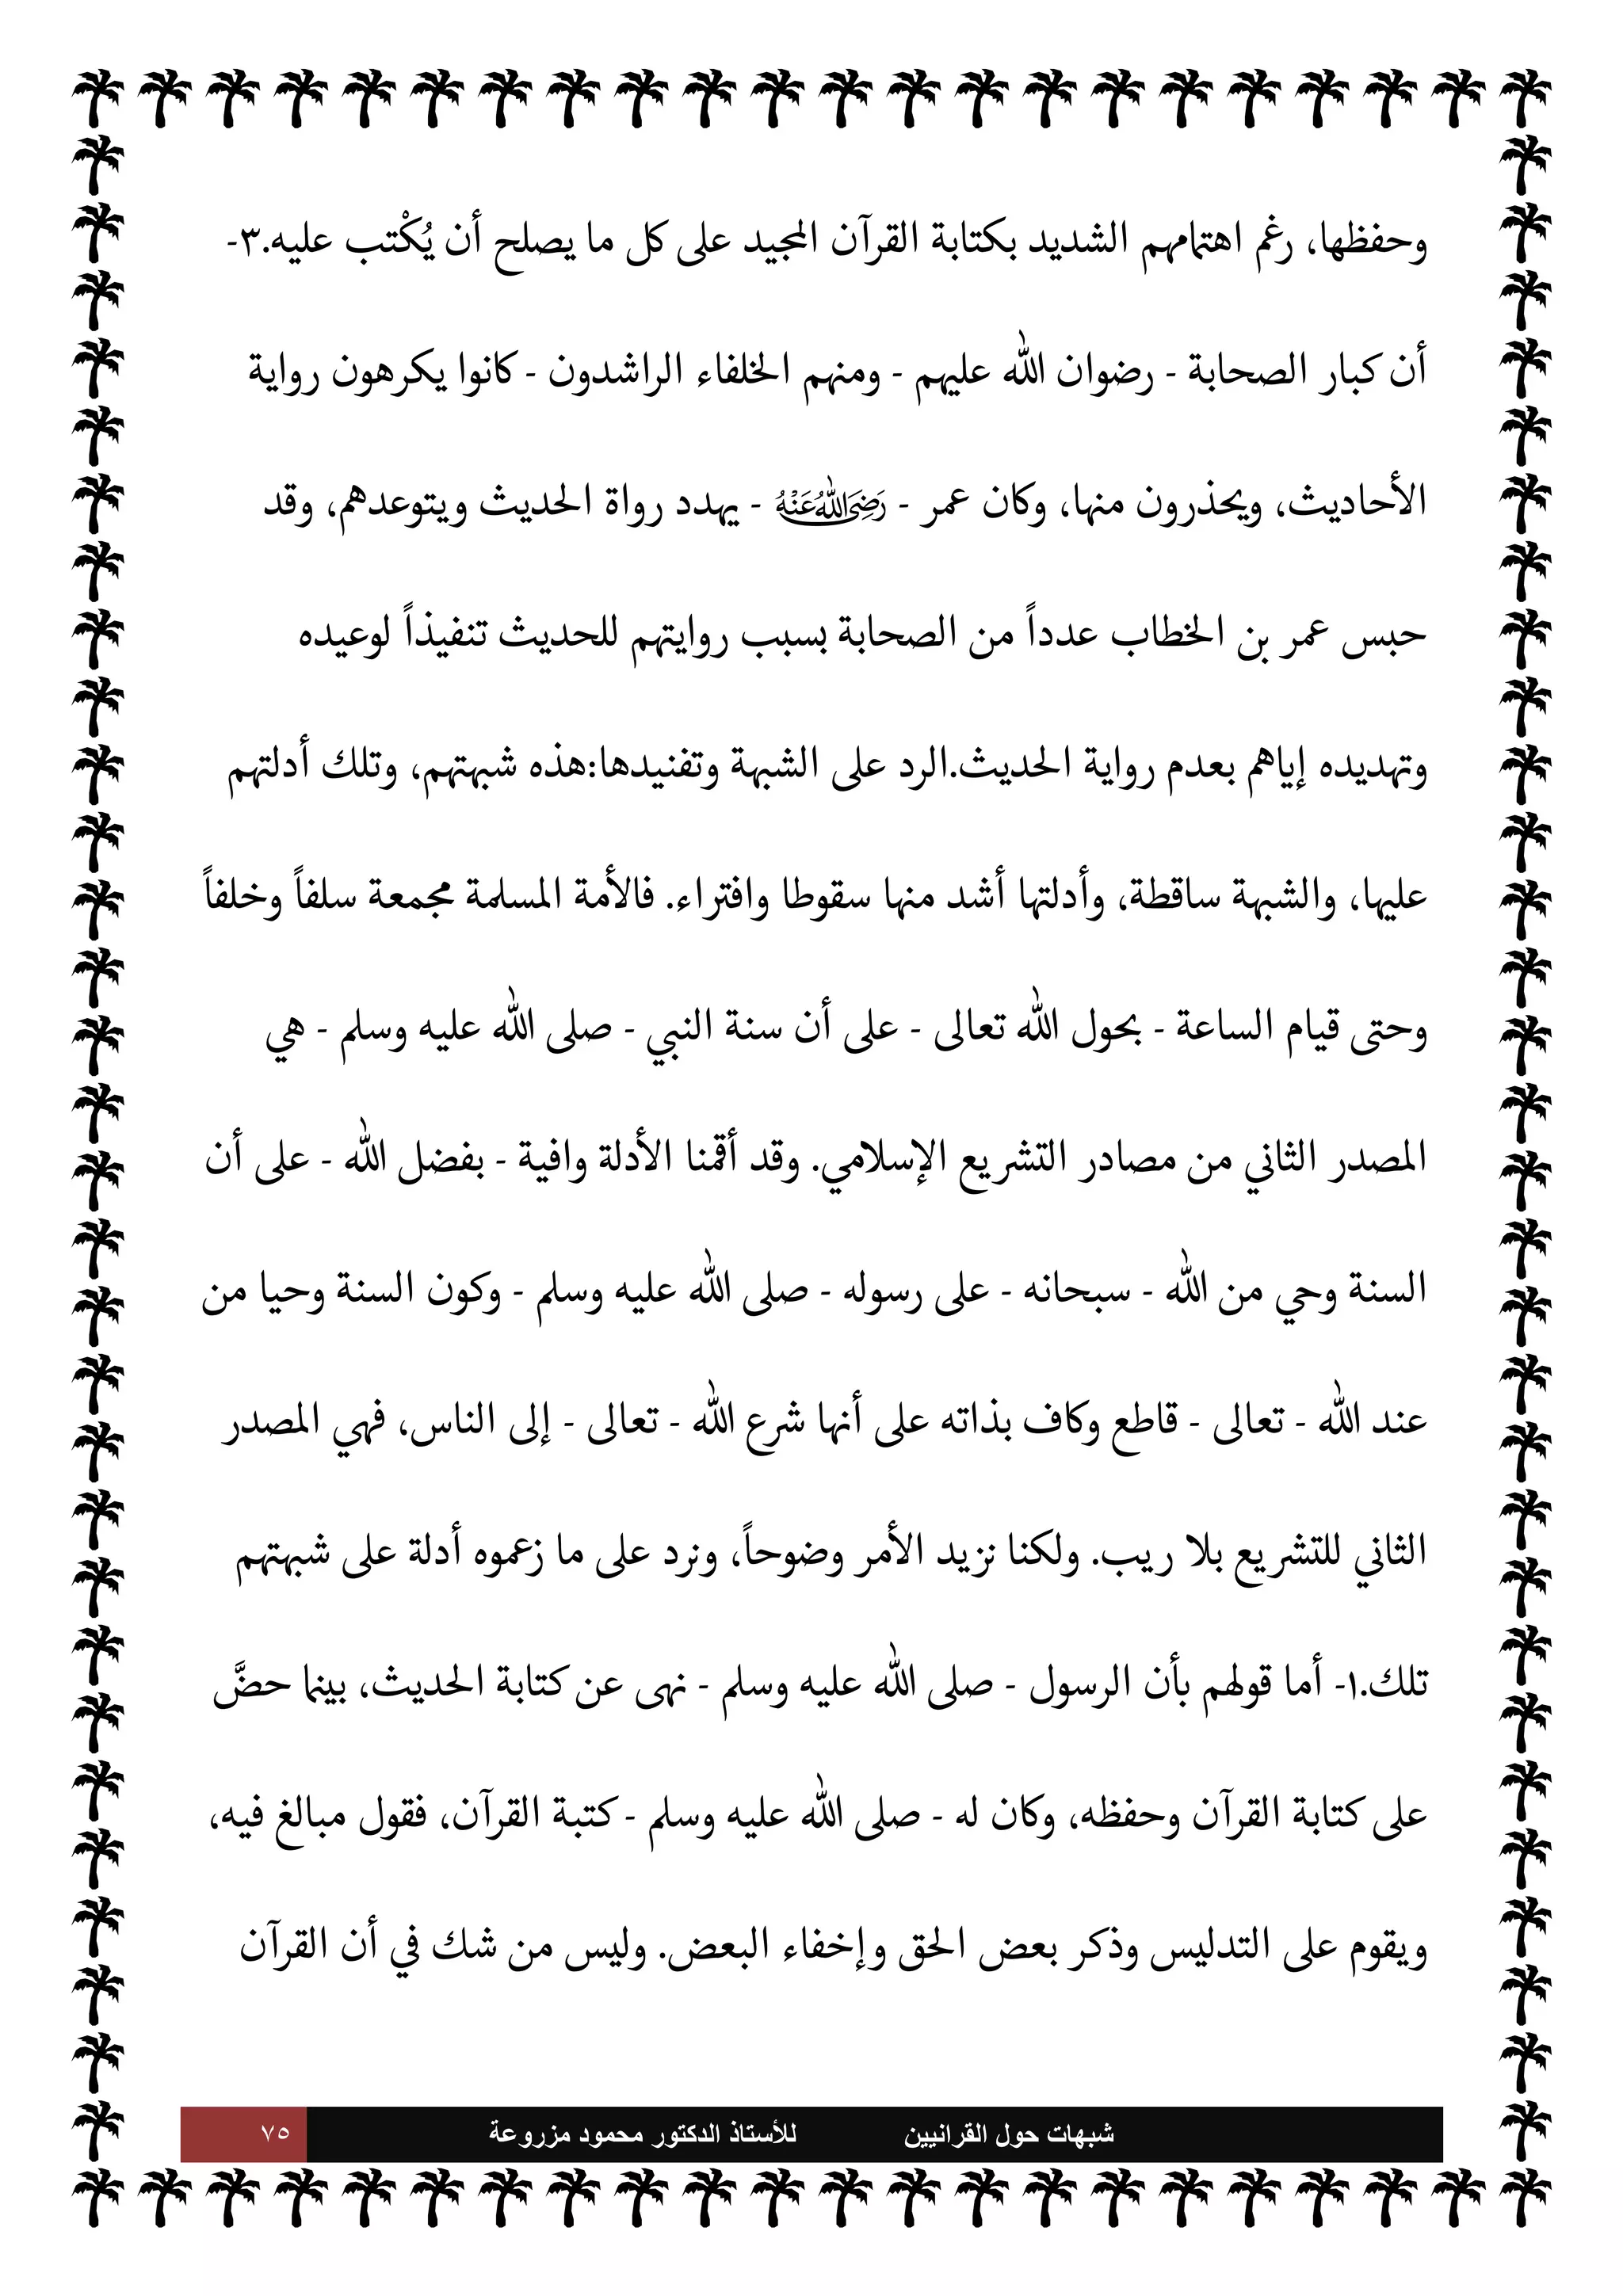 وحفظها، رغم اهتمامهم الشديد بكتابة القرآن المجيد على كل ما يصلح أن يُكْتب عليه.٣-
أن كبار الصحابة - رضوان الله عليهم - ومنهم الخلفاء الراشدون - كانوا يكرهون رواية
الأحاديث، ويحذرون منها، وكان عمر - رَضِيَ اللهُ عَنْهُ - يهدد رواة الحديث ويتوعدهم، وقد
حبس عمر بن الخطاب عدداً من الصحابة بسبب روايتهم للحديث تنفيذاً لوعيده
وتهديده إياهم بعدم رواية الحديث.الرد على الشبهة وتفنيدها:هذه شبهتهم، وتلك أدلتهم
عليها، والشبهة ساقطة، وأدلتها أشد منها سقوطا وافتراء. فالأمة المسلمة مجمعة سلفاً وخلفاً
وحتى قيام الساعة - بحول الله تعالى - على أن سنة النبي - صلى الله عليه وسلم - هي
المصدر الثاني من مصادر التشريع الإسلامي. وقد أقمنا الأدلة وافية - بفضل الله - على أن
السنة وحي من الله - سبحانه - على رسوله - صلى الله عليه وسلم - وكون السنة وحيا من
عند الله - تعالى - قاطع وكاف بذاته على أنها شرع الله - تعالى - إلى الناس، فهي المصدر
الثاني للتشريع بلا ريب. ولكنا نزيد الأمر وضوحاً، ونرد على ما زعموه أدلة على شبهتهم
تلك.١- أما قولهم بأن الرسول - صلى الله عليه وسلم - نهى عن كتابة الحديث، بينما حضَّ
على كتابة القرآن وحفظه، وكان له - صلى الله عليه وسلم - كتبة القرآن، فقول مبالغ فيه،
ويقوم على التدليس وذكر بعض الحق وإخفاء البعض. وليس من شك في أن القرآن
شبهات حول القرانيين للأستاذ الدكتور محمود مزروعة ٧٥